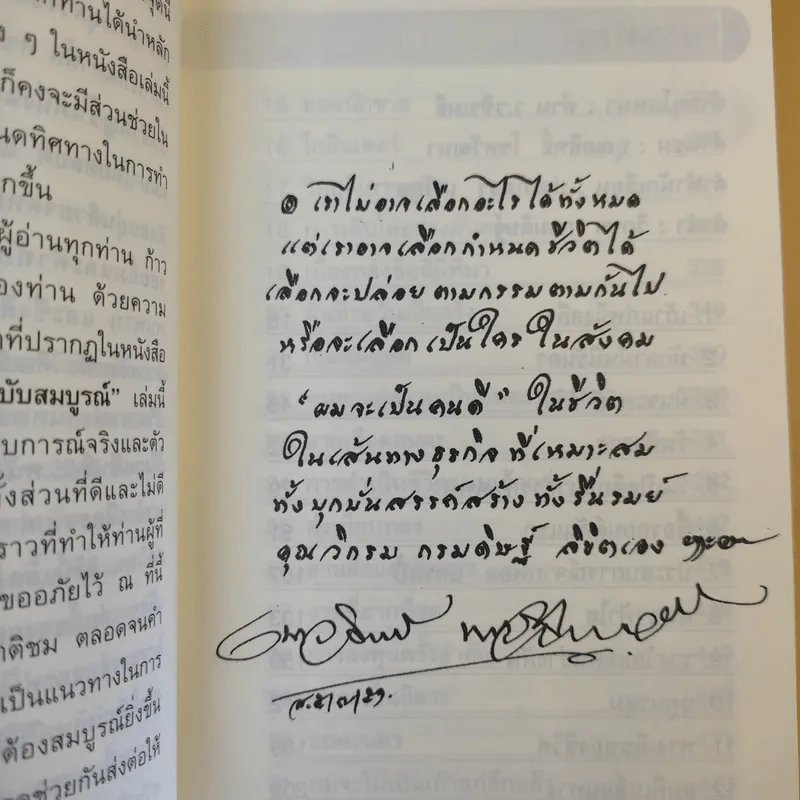 ท่านได้นำหลัก
ๆ ในหนังสือเล่มนี้
ก็คงจะมีส่วนช่วยใน
นดทิศทางในการทำ
กขึ้น
ผู้อ่านทุกท่าน ก้าว
องท่าน ด้วยความ
าที่ปรากฏในหนังสือ
บับสมบูรณ์” เล่มนี้
บการณ์จริงและตัว
ั้งส่วนที่ดีและไม่ดี
ราวที่ทำให้ท่านผู้ที่
ขออภัยไว้ ณ ที่นี้
าติชม ตลอดจนคำ
เป็นแนวทางในการ
ต้องสมบูรณ์ยิ่งขึ้น
ช่วยกันส่งต่อให้
๏ เราไม่อาจเลือกอะไรได้ทั้งหมด
แต่เราอาจเลือกกำหนดชีวิตได้
เลือกจะปล่อยตามกรรมตามกันไป
หรือจะเลือกเป็นใครในสังคม
“ผมจะเป็นคนดี” ในชีวิต
ในเส้นทางธุรกิจที่เหมาะสม
ทั้งบุกบั่นสรรค์สร้างทั้งรื่นรมย์
คุณวิกรม กรมดิษฐ์ ลิขิตเอง